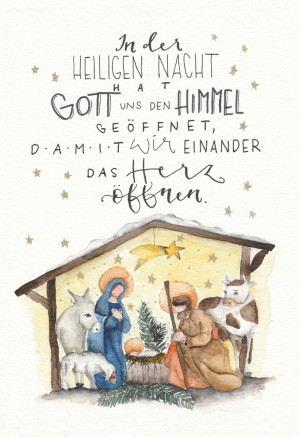 In der
HEILIGEN NACHT
HAT
GOTT UNS DEN HIMMEL
GEÖFFNET,
D·A·M·I·T wir EINANDER
DAS Herz
öffnen.